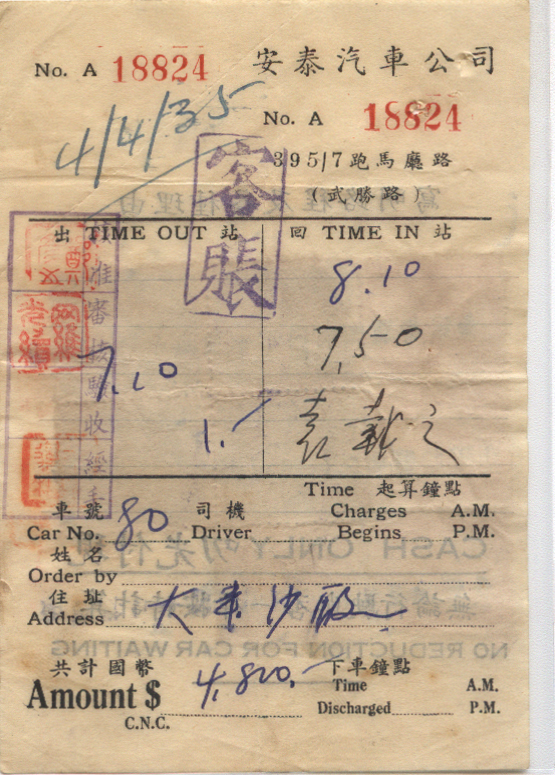 No. A 18824 安泰汽車公司
4/4/35
No. A 18824
395/7跑馬廳路
(武勝路)
客賬
出 TIME OUT 站
回 TIME IN 站
8.10
7,50
7.10
1.
袁
車號 Car No. 80
司機 Driver
Time 起算鐘點
Charges A.M.
Begins P.M.
姓名
Order by
住址
Address 大 沙廠
共計國幣
Amount $ 4,800.
C.N.C.
下車鐘點
Time A.M.
Discharged P.M.
CASH ONLY
NO REDUCTION FOR CAR WAITING